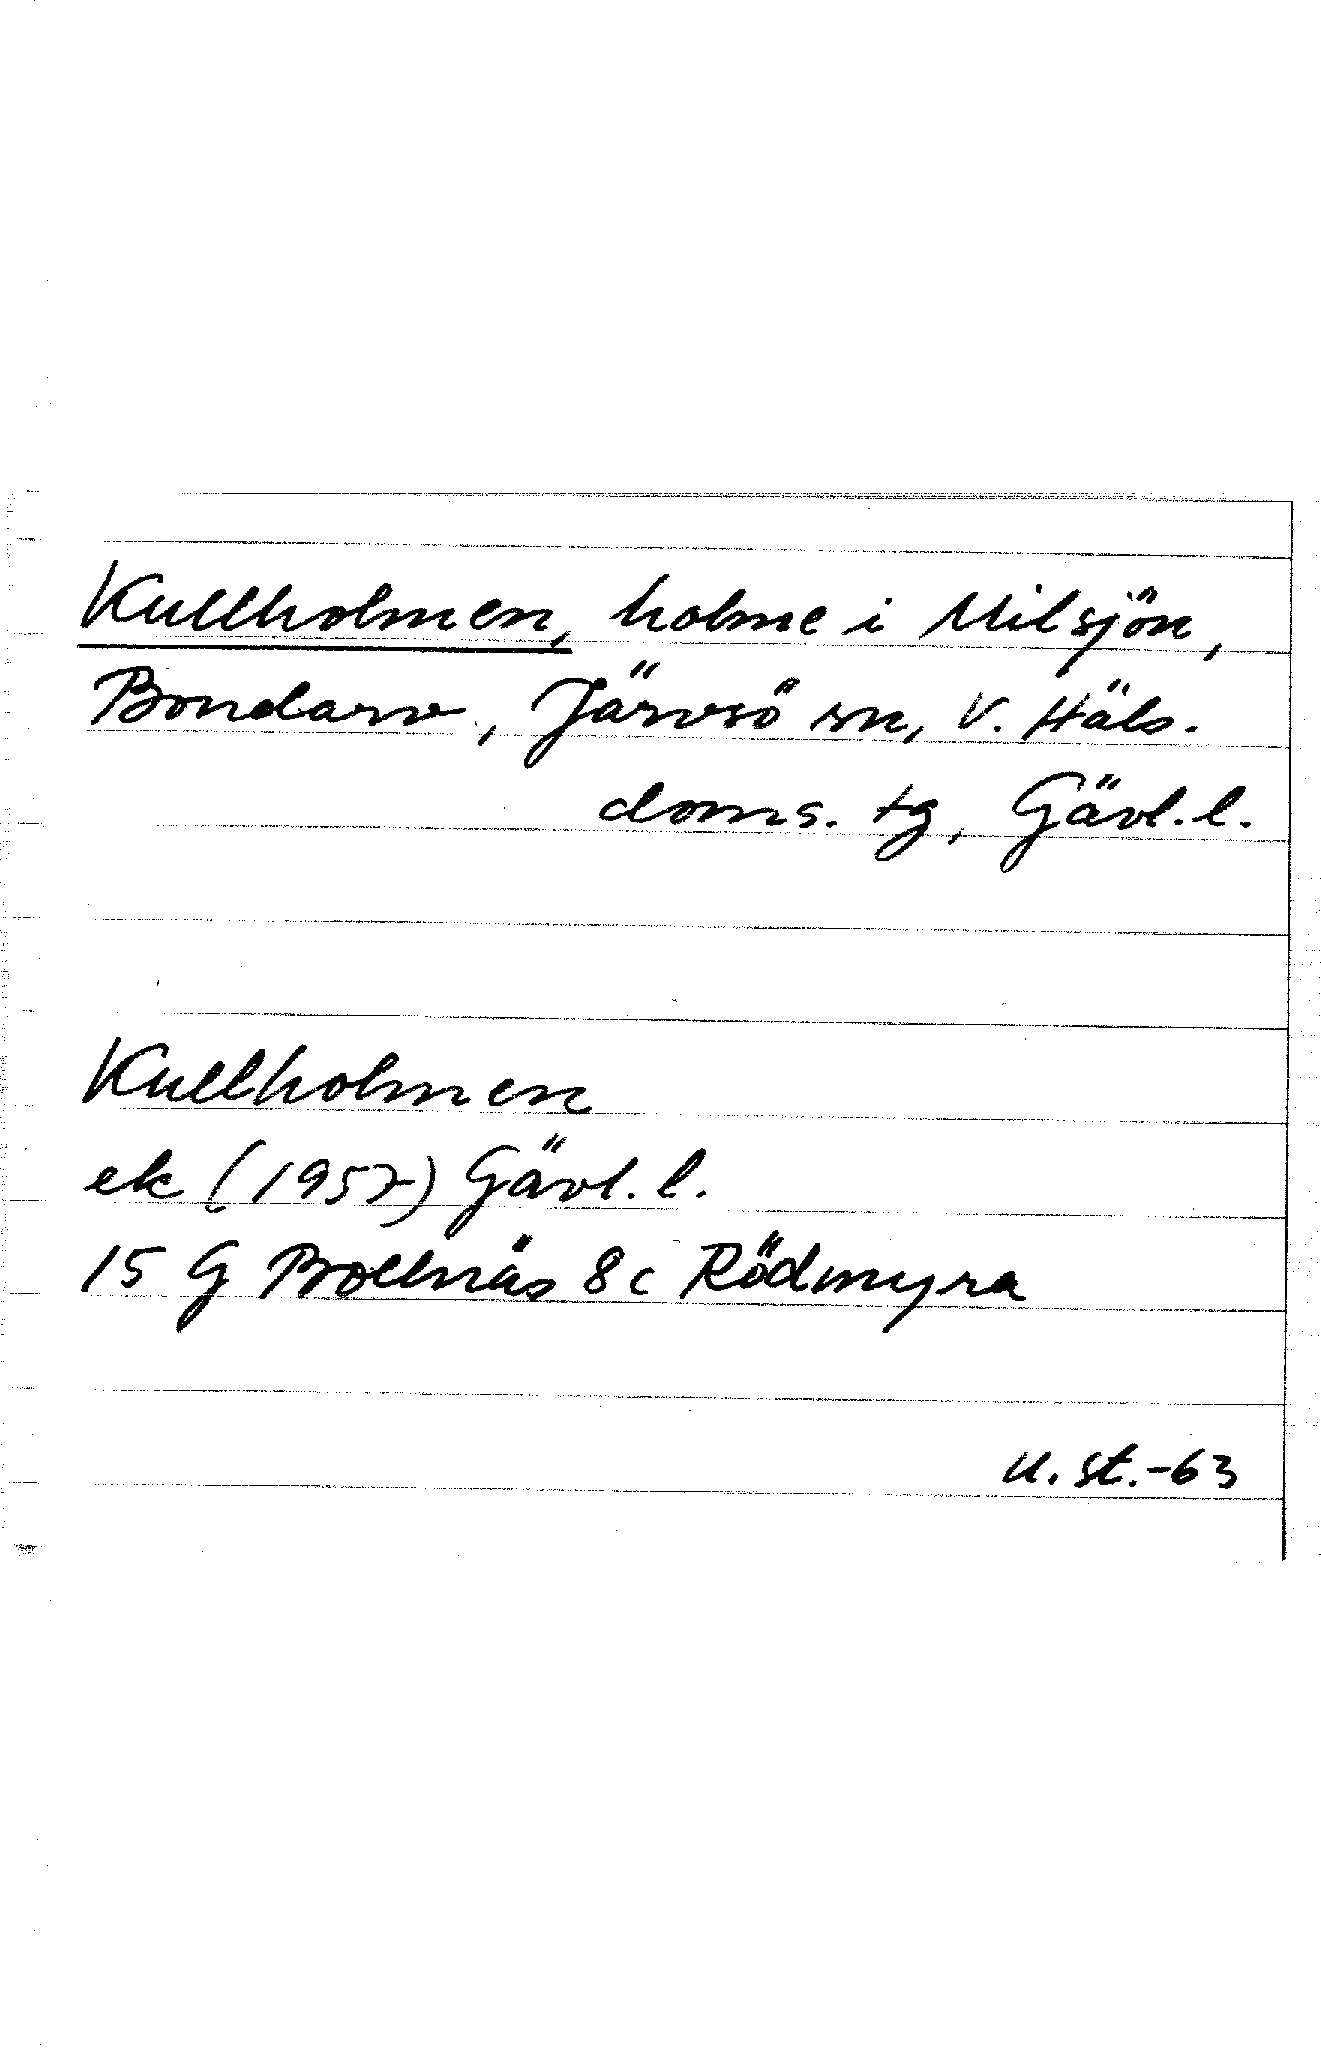 Kullholmen, holme i Milsjön,
Bondarv, Järvsö sn, V. Häls.
doms. tg, Gävl. l.
Kullholmen
ek (1957) Gävl. l.
15 G Bollnäs 8 c Rödmyra
U. St. -63